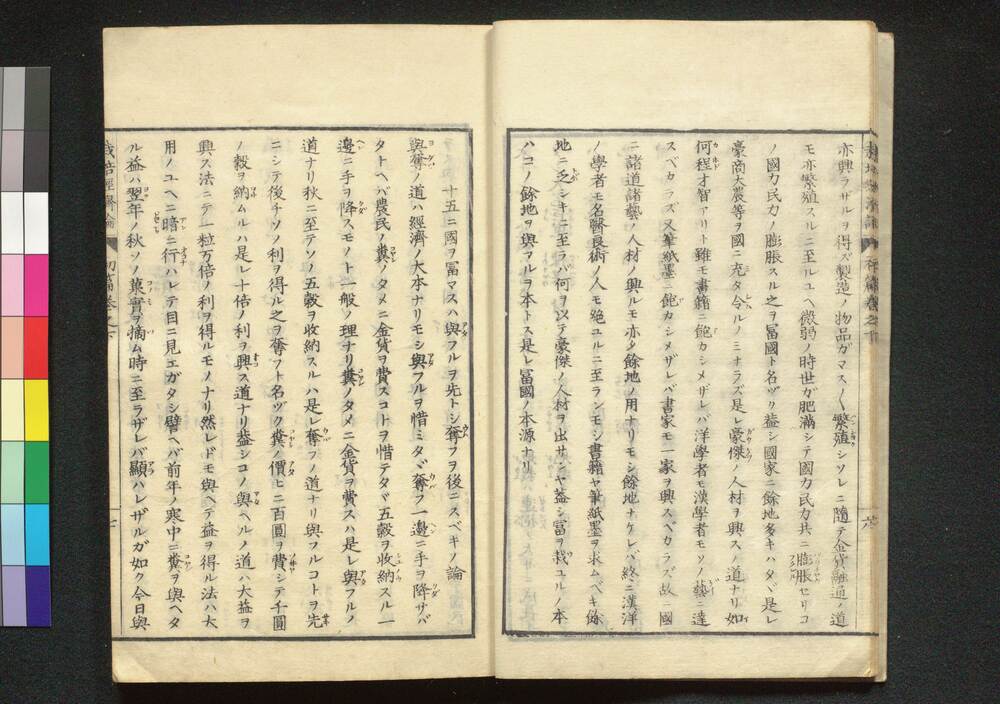 亦興ラサルヲ得ズ製造ノ物品ガマス〱繁殖シソレニ隨テ金貨融通ノ道
モ亦繁殖スルニ至ルユヘ微弱ノ時世ガ肥滿シテ國力民力共ニ膨脹セリコ
ノ國力民力ノ膨脹スル之ヲ冨國ト名ヅク益シ國家ニ餘地多キハタヾ是レ
豪商大農等ヲ國ニ充タ令ルノミナラズ是レ豪傑ノ人材ヲ興スノ道ナリ如
何程才智アリト雖モ書籍ニ飽カシメザレバ洋學者モ漢學者モソノ藝ニ達
スベカラズ又筆紙墨ニ飽カシメザレバ書家モ一家ヲ興スベカラズ故ニ國
ニ諸道諸藝ノ人材ノ興ルモ亦タ餘地ノ用ナリモシ餘地ナケレバ終ニ漢洋
ノ學者モ名醫良術ノ人モ絶ユルニ至ランモシ書籍ヤ筆紙墨ヲ求ムベキ餘
地ニ乏シキニ至ラバ何ヲ以テ豪傑ノ人材ヲ出サンヤ益シ冨ヲ栽ユルノ本
ハコノ餘地ヲ與フルヲ本トス是レ冨國ノ本源ナリ
十五ニ國ヲ冨マスハ與フルヲ先トシ奪フヲ後ニスベキノ論
與奪ノ道ハ經濟ノ大本ナリモシ與フルヲ惜ミタヾ奪フ一邊ニ手ヲ降サバ
タトヘバ農民ノ糞ノタメニ金貨ヲ費スコトヲ惜テタヾ五穀ヲ收納スル一
邊ニ手ヲ降スモノト一般ノ理ナリ糞ノタメニ金貨ヲ費スハ是レ與フルノ
道ナリ秋ニ至テソノ五穀ヲ收納スルハ是レ奪フノ道ナリ與フルコトヲ先
ニシテ後チソノ利ヲ得ル之ヲ奪フト名ヅク糞ノ價ヒニ百圓ヲ費シテ千圓
ノ穀ヲ納ムルハ是レ十倍ノ利ヲ興ス道ナリ益シコノ與ヘルノ道ハ大益ヲ
興ス法ニテ一粒万倍ノ利ヲ得ルモノナリ然レドモ與ヘテ益ヲ得ル法ハ大
用ノユヘニ暗ニ行ハレテ目ニ見エガタシ譬ヘバ前年ノ寒中ニ糞ヲ與ヘタ
ル益ハ翌年ノ秋ソノ菓實ヲ摘ム時ニ至ラザレバ顯ハレザルガ如ク今日與
栽培經濟論 初篇卷之下